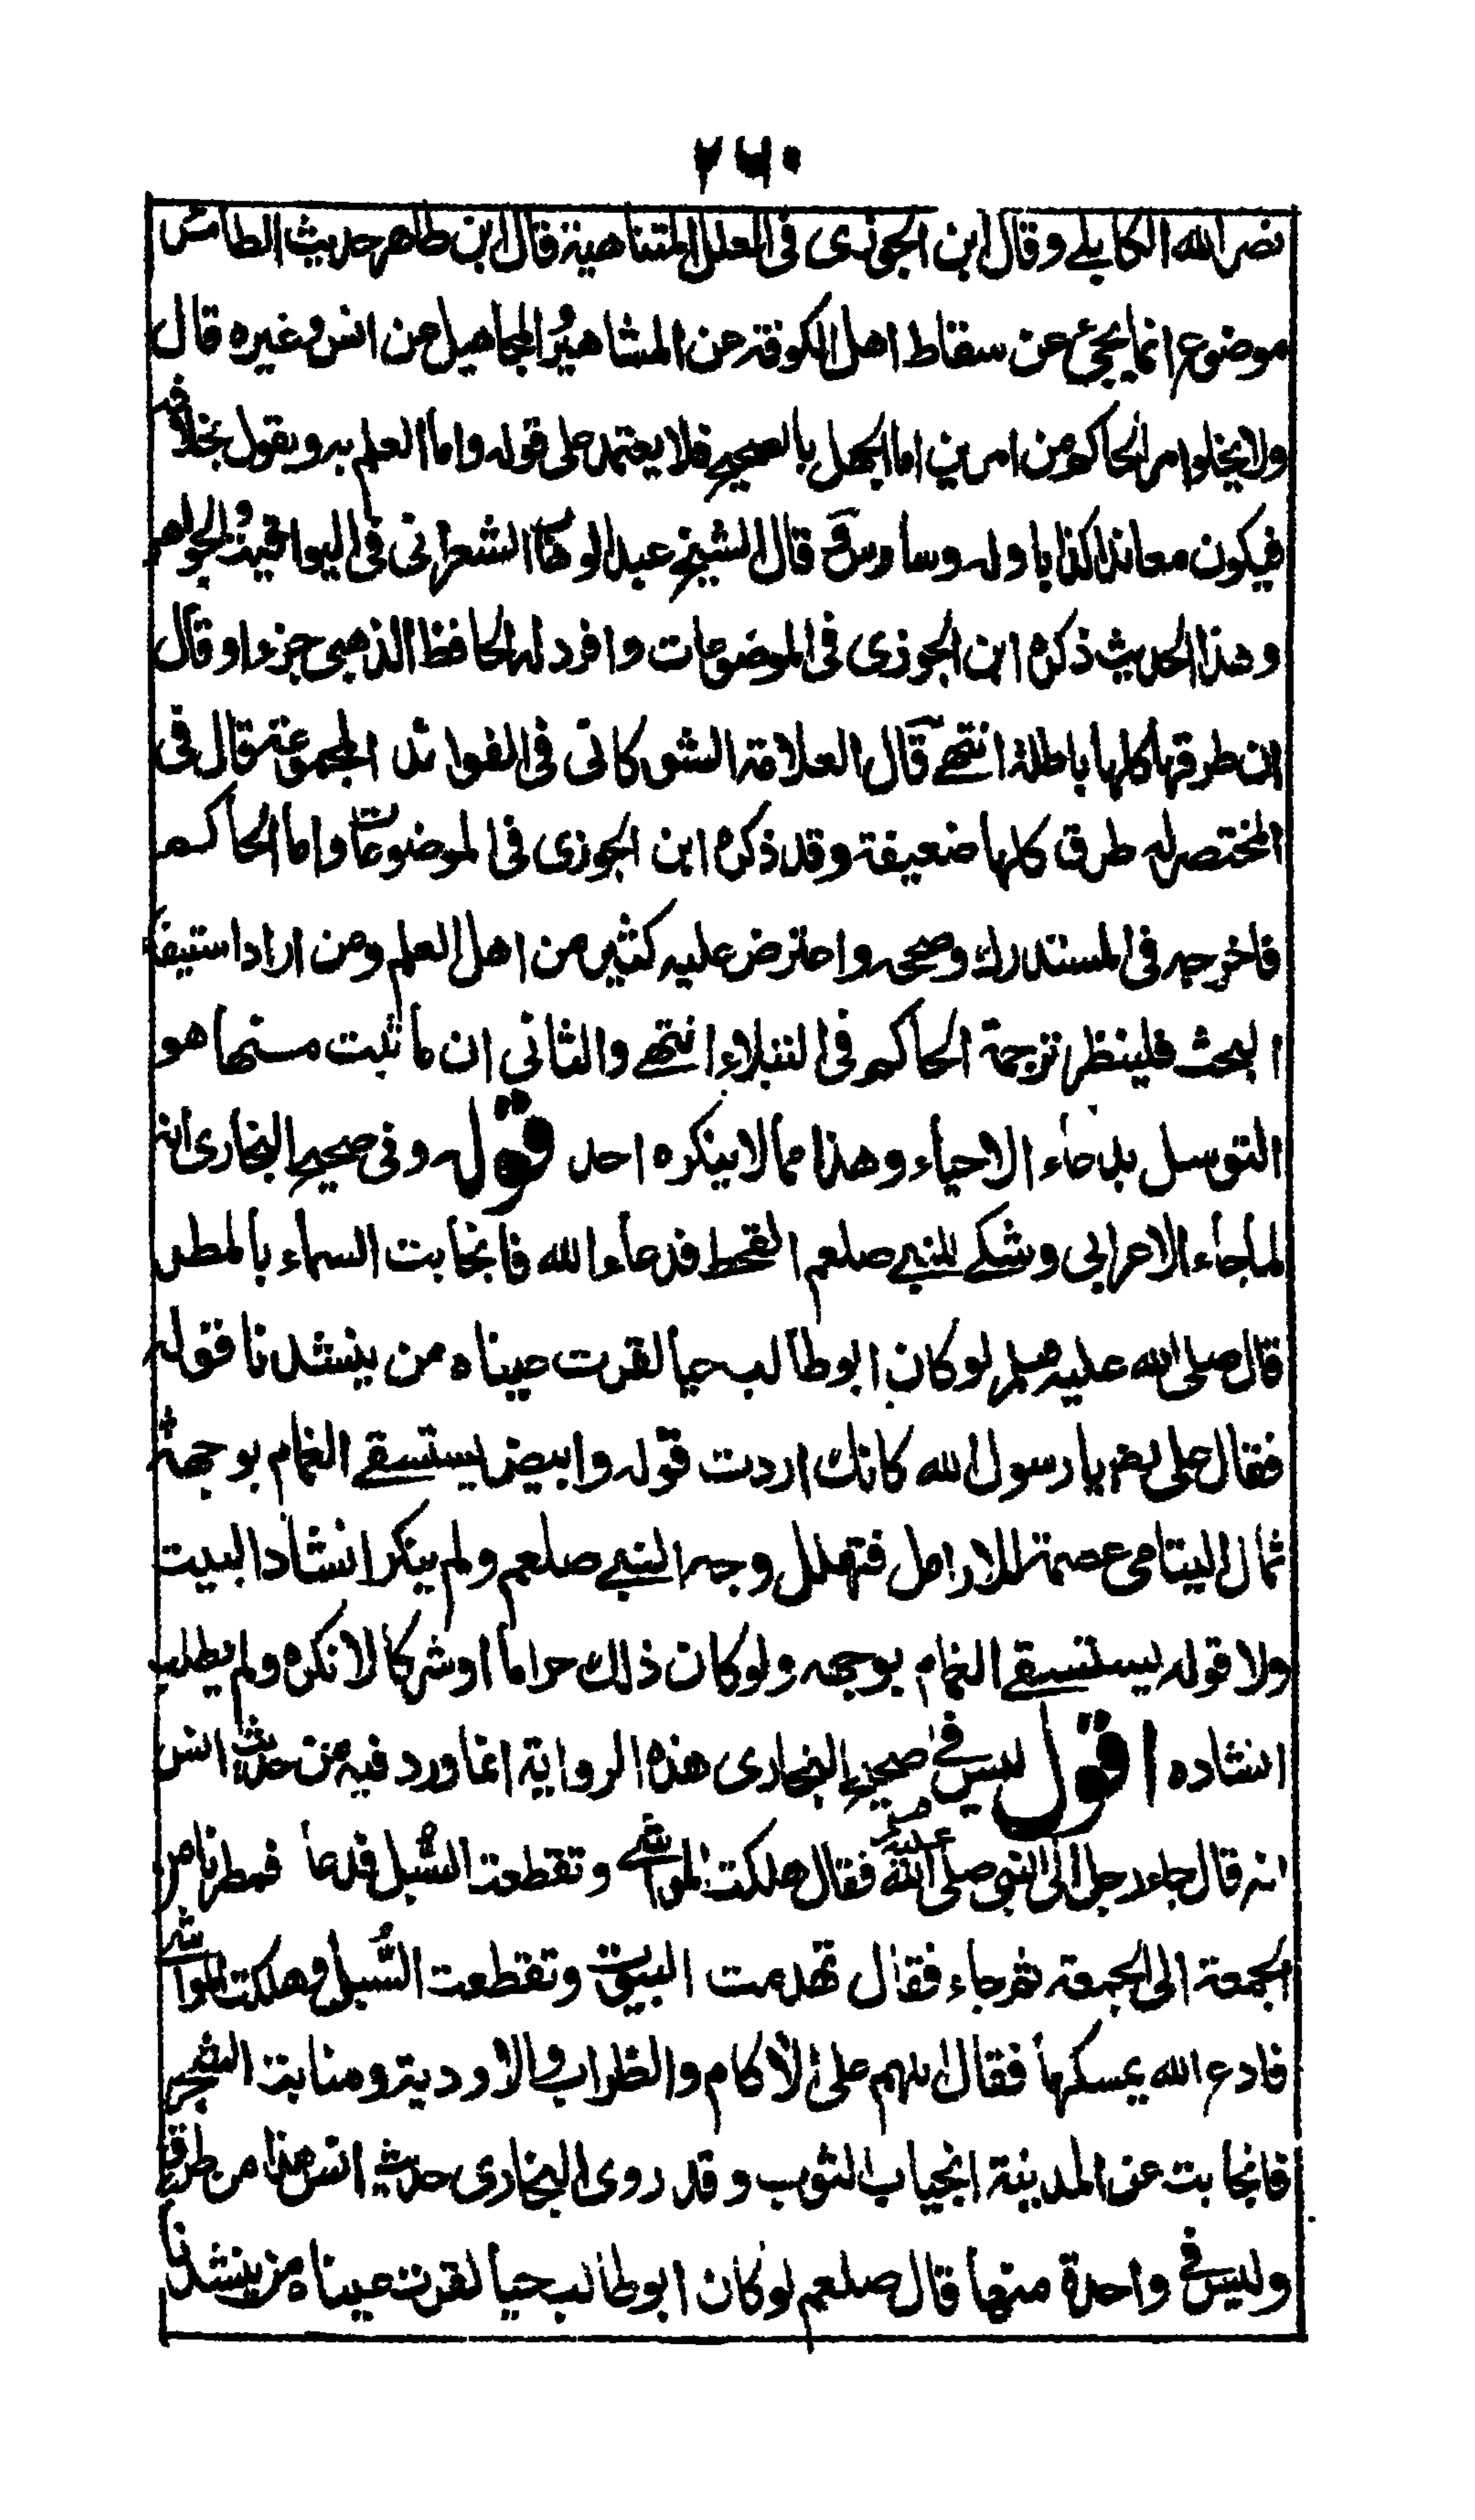 ۲۶۰
نصر الله الكابلے وقال ابن الجوزی فی العلل المتناهیة قال ابن طاهر حدیث الطائر
موضوع انما یجئ عن سقاط اهل الکوفة عن المشاهیر والمجاهیل عن انس وغیره قال
ولا یخلوا امر الحاکم من امرین اما الجهل بالصحیح فلا یعتمد علی قوله واما العلم به ویقول بخلافه
فیکون معاندا کذابا وله وساوس قال الشیخ عبد الوهاب الشعرانی فی الیواقیت والجواهر
وهذا الحدیث ذکره ابن الجوزی فی الموضوعات وافرد له الحافظ الذهبی جزءا وقال
ان طرقها کلها باطلة انتهے قال العلامة الشوکانی فی الفوائد المجموعة قال فی
المختصر له طرق کلها ضعیفة وقد ذکره ابن الجوزی فی الموضوعات واما الحاکم
فاخرجه فی المستدرك وصححه واعترض علیه کثیر من اهل العلم ومن اراد استیفاء
البحث فلینظر ترجمة الحاکم فی النبلاء انتهے والثانی ان ما ثبت منها هو
التوسل بدعاء الاحیاء وهذا مما لا ینکره احد قوله وفی صحیح البخاری انه
لما جاء الاعرابی وشکے للنبے صلعم القحط فدعاء الله فانجابت السماء بالمطر
قال صلی الله علیه وسلم لو کان ابو طالب حیا لقرت عیناه من ینشدنا قوله
فقال علی رض یا رسول الله کانك اردت قوله وابیض یستسقے الغمام بوجهه
ثمال الیتامی عصمة للارامل فتهلل وجه النبے صلعم ولم ینکر انشاد البیت
ولا قوله یستسقے الغمام بوجهه ولو کان ذلك حراما او شرکا لانکره ولم یطلب
انشاده اقول لیس فی صحیح البخاری هذه الروایة انما ورد فیه من حدیث انس
انه قال جاء رجل الی النبی صلی الله علیه وسلم فقال هلکت المواشے وتقطعت السُّبل فدعا فمطرنا من
الجمعة الی الجمعة ثم جاء فقال تهدمت البیوت وتقطعت السُّبل وهلکت المواشے
فادع الله یمسکها فقال اللهم علی الآکام والظراب والاودیة ومنابت الشجر
فانجابت عن المدینة انجیاب الثوب وقد روی البخاری حدیث انس هذا من طرق
ولیس فی واحدة منها قال صلعم لو کان ابو طالب حیا لقرت عیناه من ینشدنا